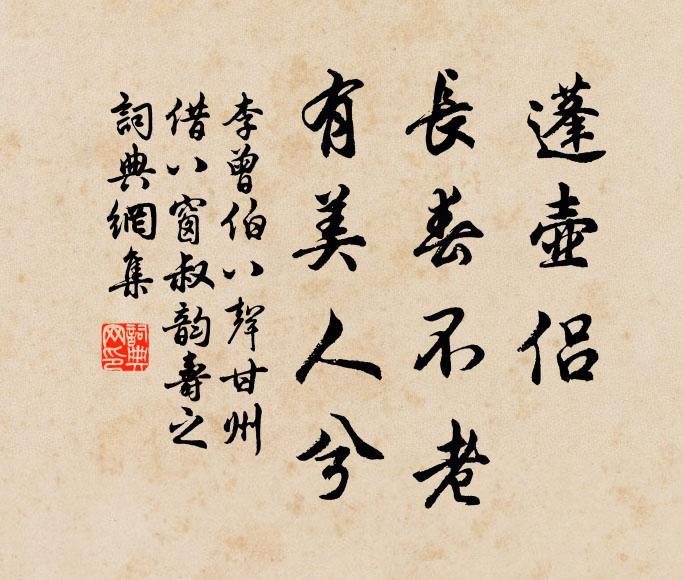 蓬壺侶
長春不老
有美人兮
李曾伯八聲甘州
借八窗叔韵壽之
詞典網集
詞典网印